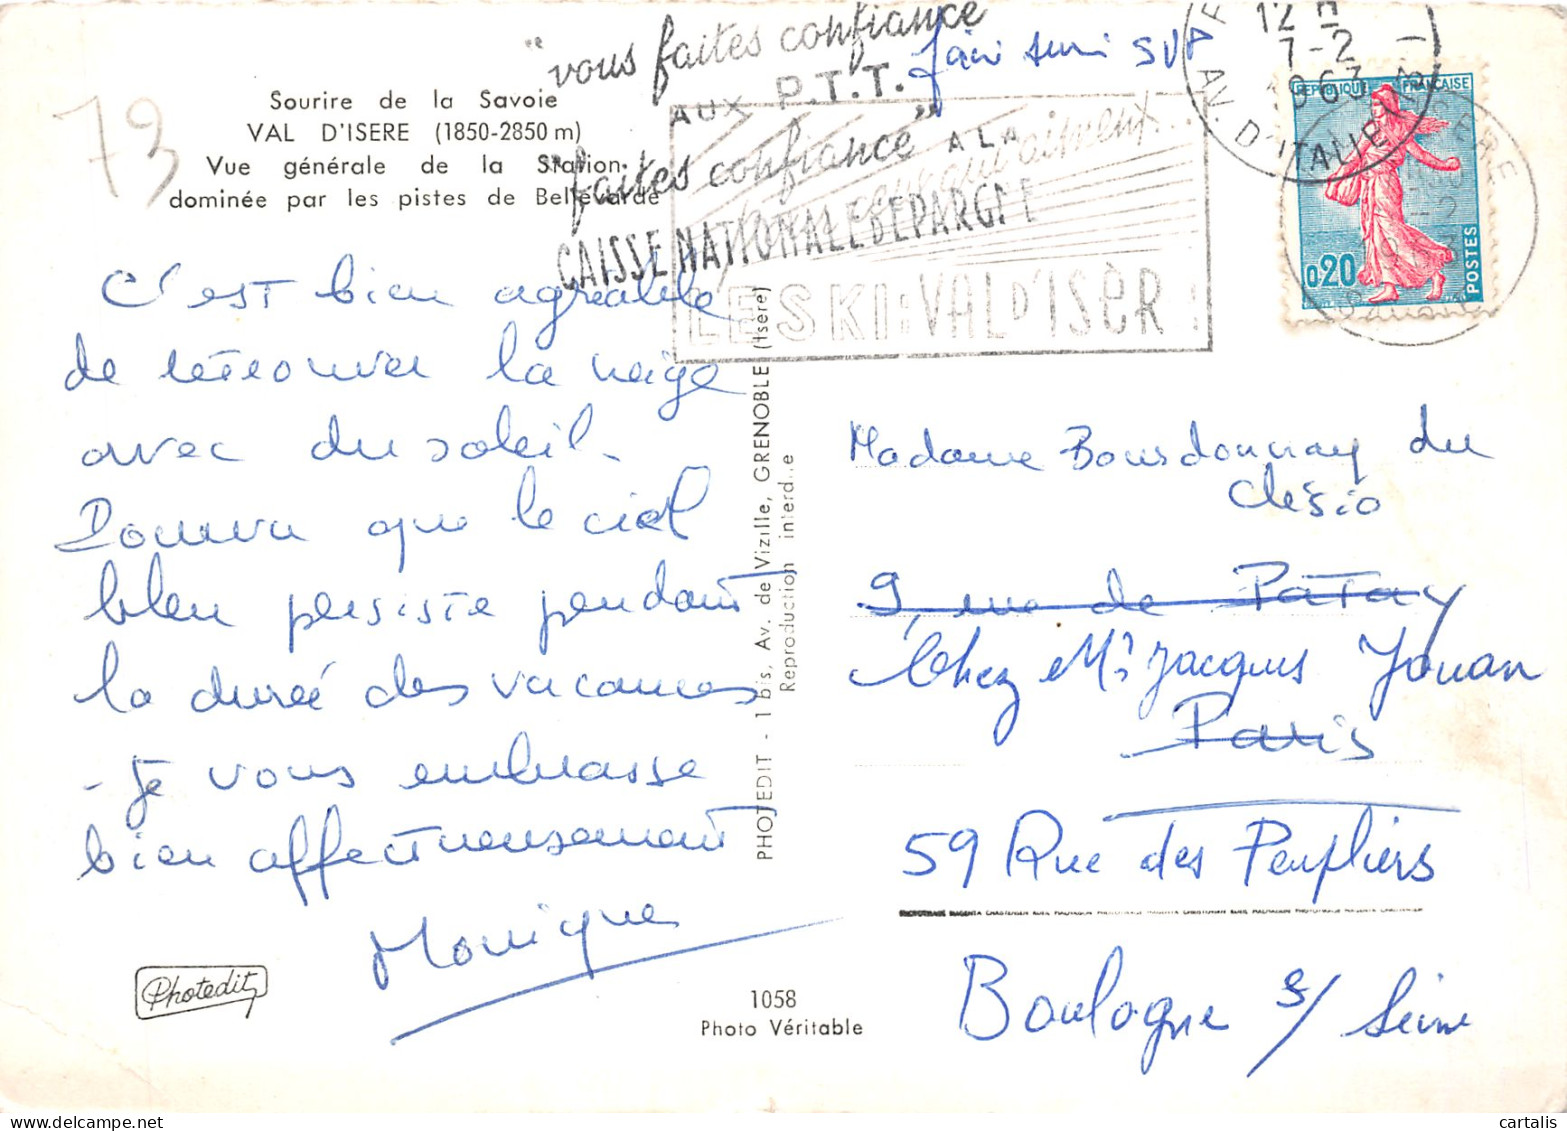 73
Sourire de la Savoie
VAL D'ISERE (1850-2850 m)
Vue générale de la Station
dominée par les pistes de Bellevarde
"vous faites confiance
AUX P.T.T."
faites confiance A LA
CAISSE NATIONALE D'EPARGNE
LE SKI: VAL D'ISÈR
SVP
12 H
7-2
1963
AV. D'ITALIE
REPUBLIQUE FRANÇAISE
0,20
POSTES
C'est bien agréable
de retrouver la neige
avec du soleil.
Pourvu que le ciel
bleu persiste pendant
la durée des vacances
- Je vous embrasse
bien affectueusement
Monique
Photedit
PHOTEDIT - 1 bis, Av. de Vizille, GRENOBLE (Isère)
Reproduction interd..e
1058
Photo Véritable
Madame Bourdonnay du
Clésio
9, rue de Patay
Chez Mr Jacques Jouan
Paris
59 Rue des Peupliers
Boulogne s/ Seine
cartalis